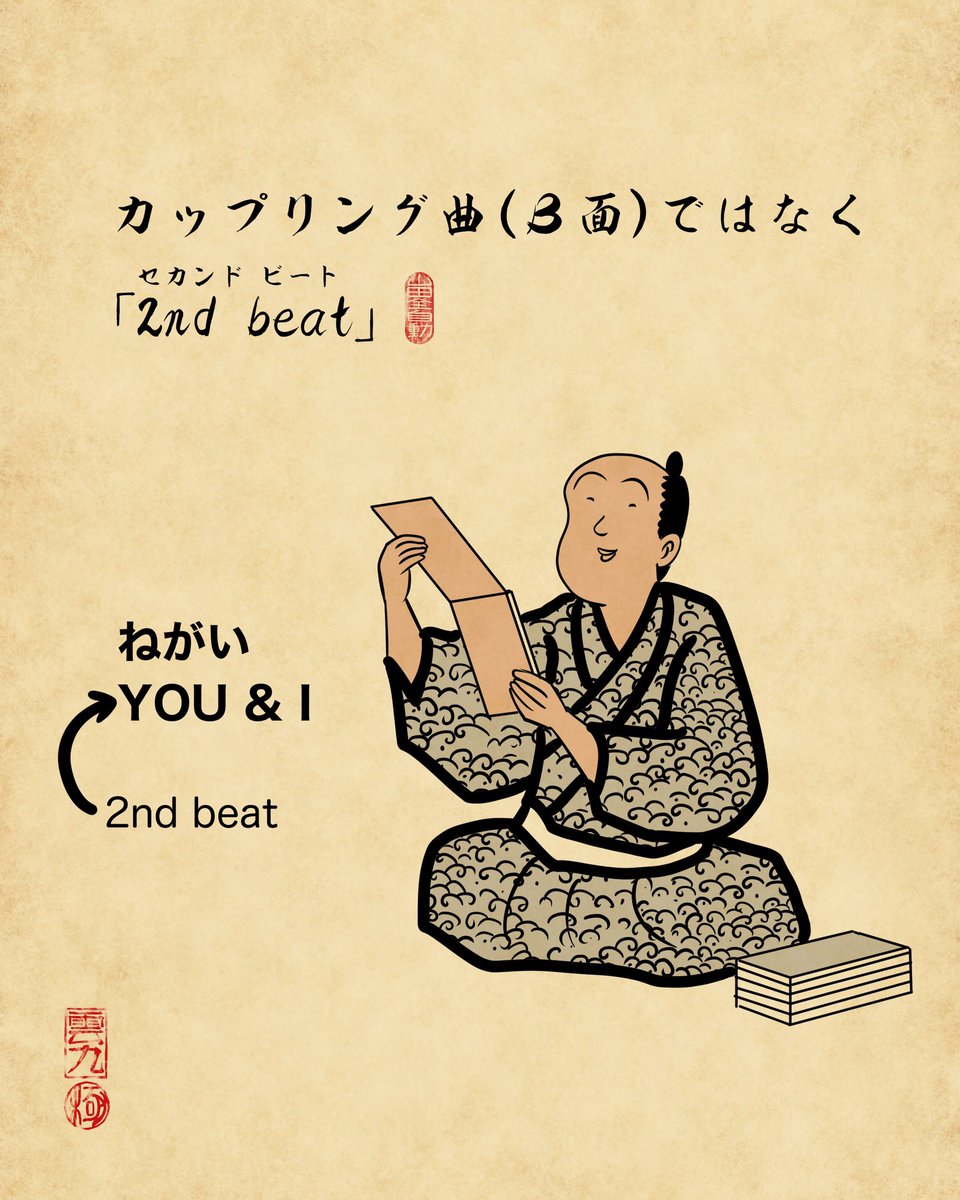 カップリング曲(B面)ではなく
セカンド ビート
「2nd beat」
ねがい
YOU & I
2nd beat